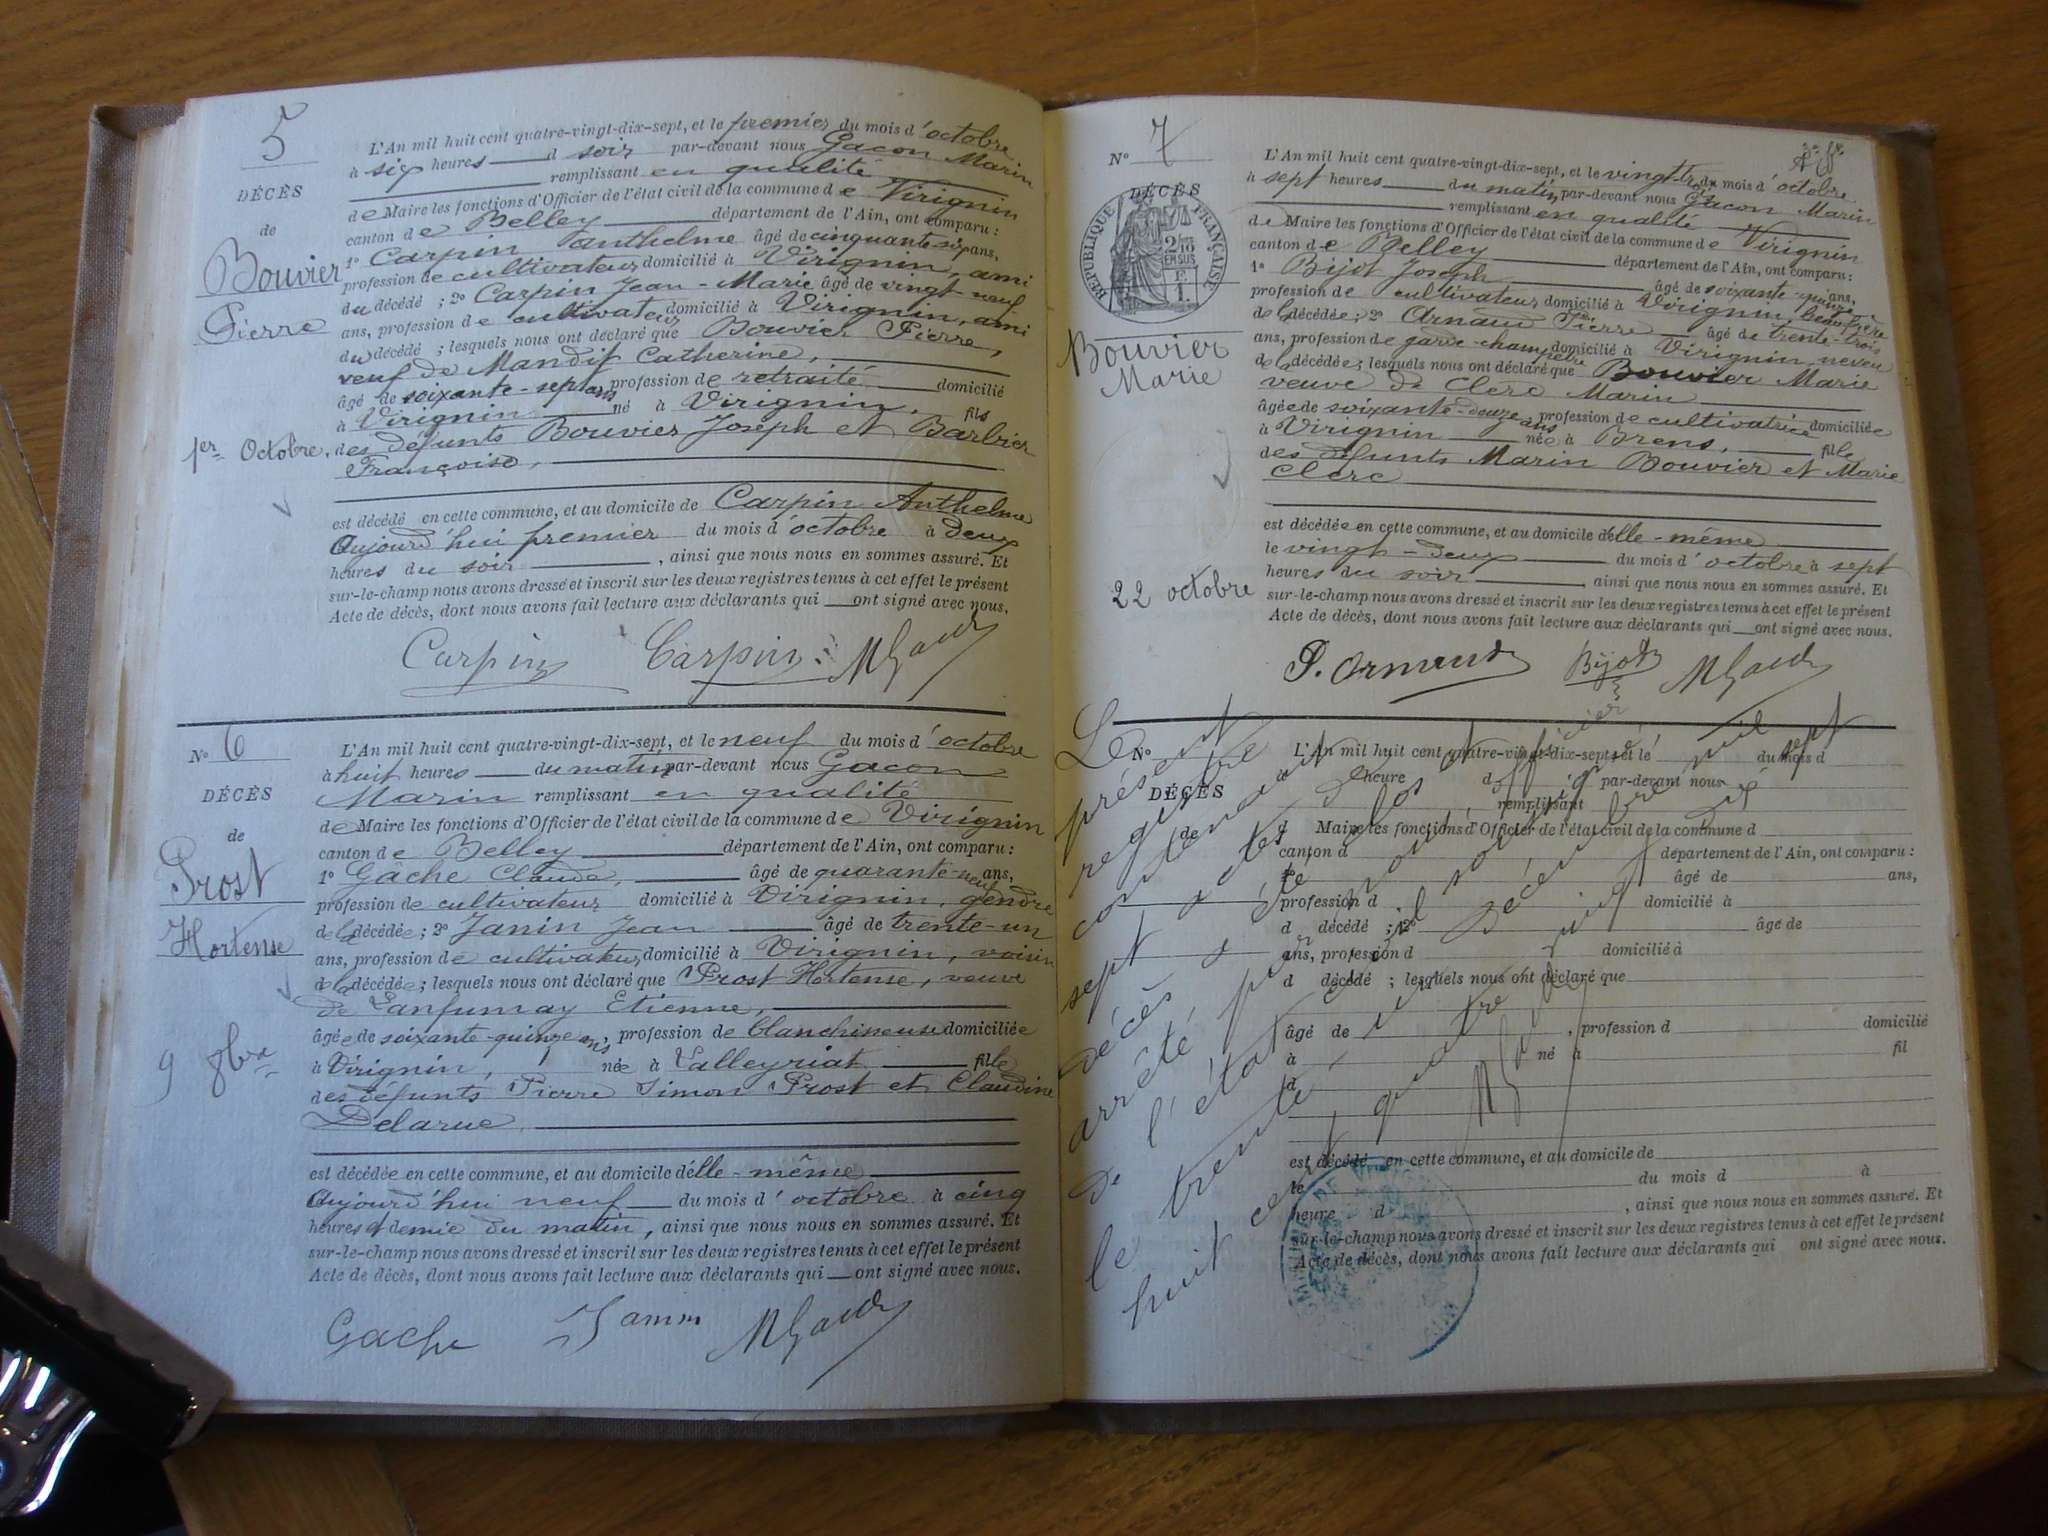 5
DÉCÈS
de
Bouvier
Pierre
1er Octobre
L'An mil huit cent quatre-vingt-dix-sept, et le premier du mois d'octobre
à six heures d soir par-devant nous Gacon Marin
remplissant en qualité
de Maire les fonctions d'Officier de l'état civil de la commune de Virignin
canton de Belley département de l'Ain, ont comparu :
1° Carpin anthelme âgé de cinquante six ans,
profession de cultivateur domicilié à Virignin, ami
du décédé ; 2° Carpin Jean-Marie âgé de vingt neuf
ans, profession de cultivateur domicilié à Virignin, ami
du décédé ; lesquels nous ont déclaré que Bouvier Pierre,
veuf de Mandif Catherine,
âgé de soixante-sept ans profession de retraité domicilié
à Virignin né à Virignin, fils
des défunts Bouvier Joseph et Barbier
Françoise,
est décédé en cette commune, et au domicile de Carpin Anthelme
Aujourd'hui premier du mois d'octobre à deux
heures du soir, ainsi que nous nous en sommes assuré. Et
sur-le-champ nous avons dressé et inscrit sur les deux registres tenus à cet effet le présent
Acte de décès, dont nous avons fait lecture aux déclarants qui ont signé avec nous.
Carpin Carpin
N° 6
DÉCÈS
de
Prost
Hortense
9 8bre
L'An mil huit cent quatre-vingt-dix-sept, et le neuf du mois d'octobre
à huit heures du matin par-devant nous Gacon
Marin remplissant en qualité
de Maire les fonctions d'Officier de l'état civil de la commune de Virignin
canton de Belley département de l'Ain, ont comparu :
1° Gâche Claude, âgé de quarante-neuf ans,
profession de cultivateur domicilié à Virignin, gendre
de la décédée ; 2° Janin Jean âgé de trente-un
ans, profession de cultivateur domicilié à Virignin, voisin
de la décédée ; lesquels nous ont déclaré que Prost Hortense, veuve
de Lanfumay Etienne,
âgée de soixante-quinze ans, profession de blanchisseuse domiciliée
à Virignin, née à Talleyriat fille
des défunts Pierre Simon Prost et Claudine
Delarue,
est décédée en cette commune, et au domicile d'elle-même
Aujourd'hui neuf du mois d'octobre à cinq
heures et demie du matin, ainsi que nous nous en sommes assuré. Et
sur-le-champ nous avons dressé et inscrit sur les deux registres tenus à cet effet le présent
Acte de décès, dont nous avons fait lecture aux déclarants qui ont signé avec nous.
Gache Janin
N° 7
DÉCÈS
RÉPUBLIQUE FRANÇAISE
Bouvier
Marie
22 octobre
L'An mil huit cent quatre-vingt-dix-sept, et le vingt-trois du mois d'octobre
à sept heures du matin, par-devant nous Gacon Marin
remplissant en qualité
de Maire les fonctions d'Officier de l'état civil de la commune de Virignin
canton de Belley département de l'Ain, ont comparu :
1° Bijot Joseph âgé de soixante-quinze ans,
profession de cultivateur domicilié à Virignin, beau-frère
de la décédée ; 2° Arnaud Pierre âgé de trente-trois
ans, profession de garde-champêtre domicilié à Virignin neveu
de la décédée ; lesquels nous ont déclaré que Bouvier Marie
veuve de Clerc Marin
âgée de soixante-douze ans, profession de cultivatrice domiciliée
à Virignin née à Brens, fille
des défunts Marin Bouvier et Marie
Clerc
est décédée en cette commune, et au domicile d'elle-même
le vingt-deux du mois d'octobre à sept
heures du soir, ainsi que nous nous en sommes assuré. Et
sur-le-champ nous avons dressé et inscrit sur les deux registres tenus à cet effet le présent
Acte de décès, dont nous avons fait lecture aux déclarants qui ont signé avec nous.
Bijot
N°
DÉCÈS
de
L'An mil huit cent quatre-vingt-dix-sept, et le du mois d
à heure d par-devant nous
remplissant
d Maire les fonctions d'Officier de l'état civil de la commune d
canton d département de l'Ain, ont comparu :
1° âgé de ans,
profession d domicilié à
d décédé ; 2° âgé de
ans, profession d domicilié à
d décédé ; lesquels nous ont déclaré que
âgé de , profession d domicilié
à né à fil
d
est décédé en cette commune, et au domicile de
le du mois d à
heure d , ainsi que nous nous en sommes assuré. Et
sur-le-champ nous avons dressé et inscrit sur les deux registres tenus à cet effet le présent
Acte de décès, dont nous avons fait lecture aux déclarants qui ont signé avec nous.
Le présent
registre
contenant
sept actes de
décès a été clos et
arrêté par nous officier
de l'état civil soussigné
le trente un décembre mil
huit cent quatre vingt dix sept